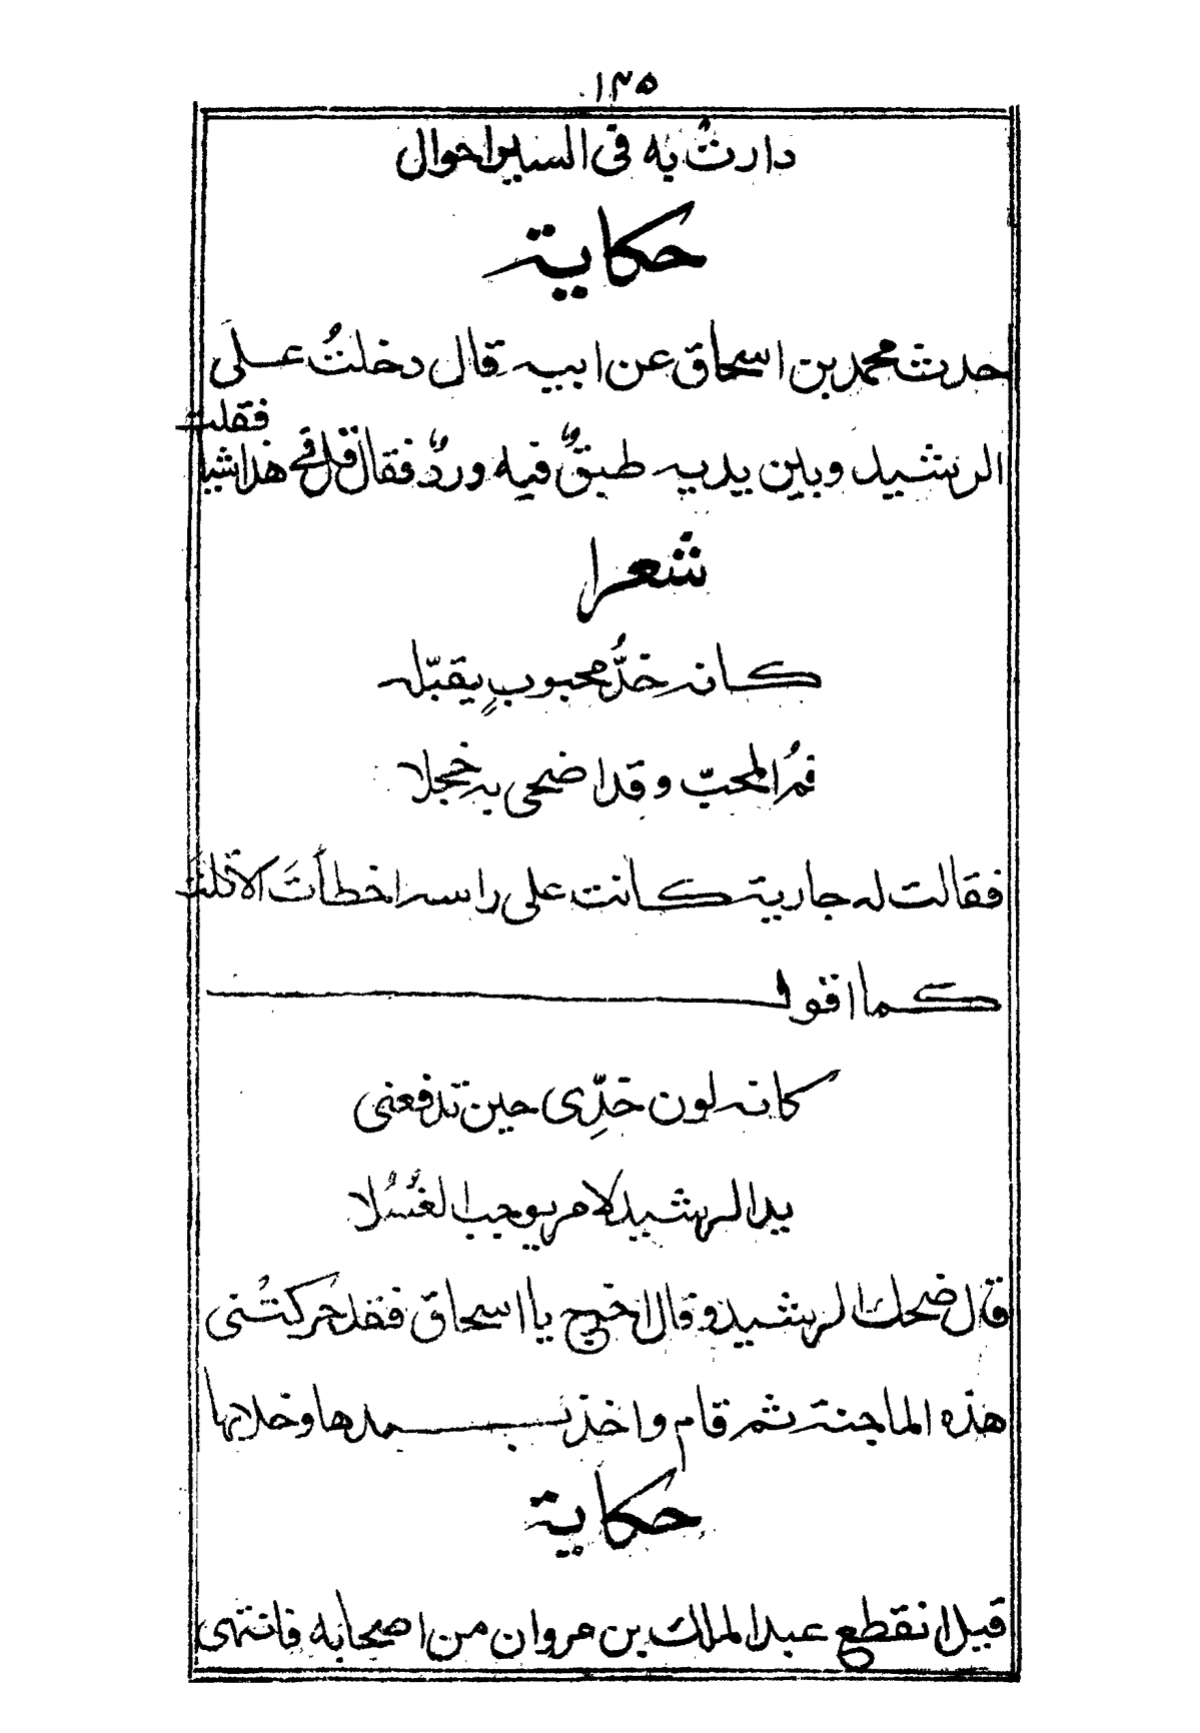 ١٣٥
دارت به فى السير احوال
حكاية
حدث محمد بن اسحاق عن ابيه قال دخلتُ على
فقلت
الرشيد وبين يديه طبقٌ فيه وردٌ فقال قل فى هذا شيا
شعرا
كانه خدُّ محبوبٍ يقبّله
فمُ المحبّ وقد اضحى به خجلا
فقالت له جارية كانت على راسه اخطأتَ الا قلتَ
كما اقول
كانه لون خدِّى حين تدفعنى
يد الرشيد لامر يوجب الغُسُلا
قال ضحك الرشيد وقال اخرج يا اسحاق فقد حركتْنى
هذه الماجنة ثم قام واخذ بيدها وخلا بها
حكاية
قيل انقطع عبد الملك بن مروان من اصحابه فانتهى